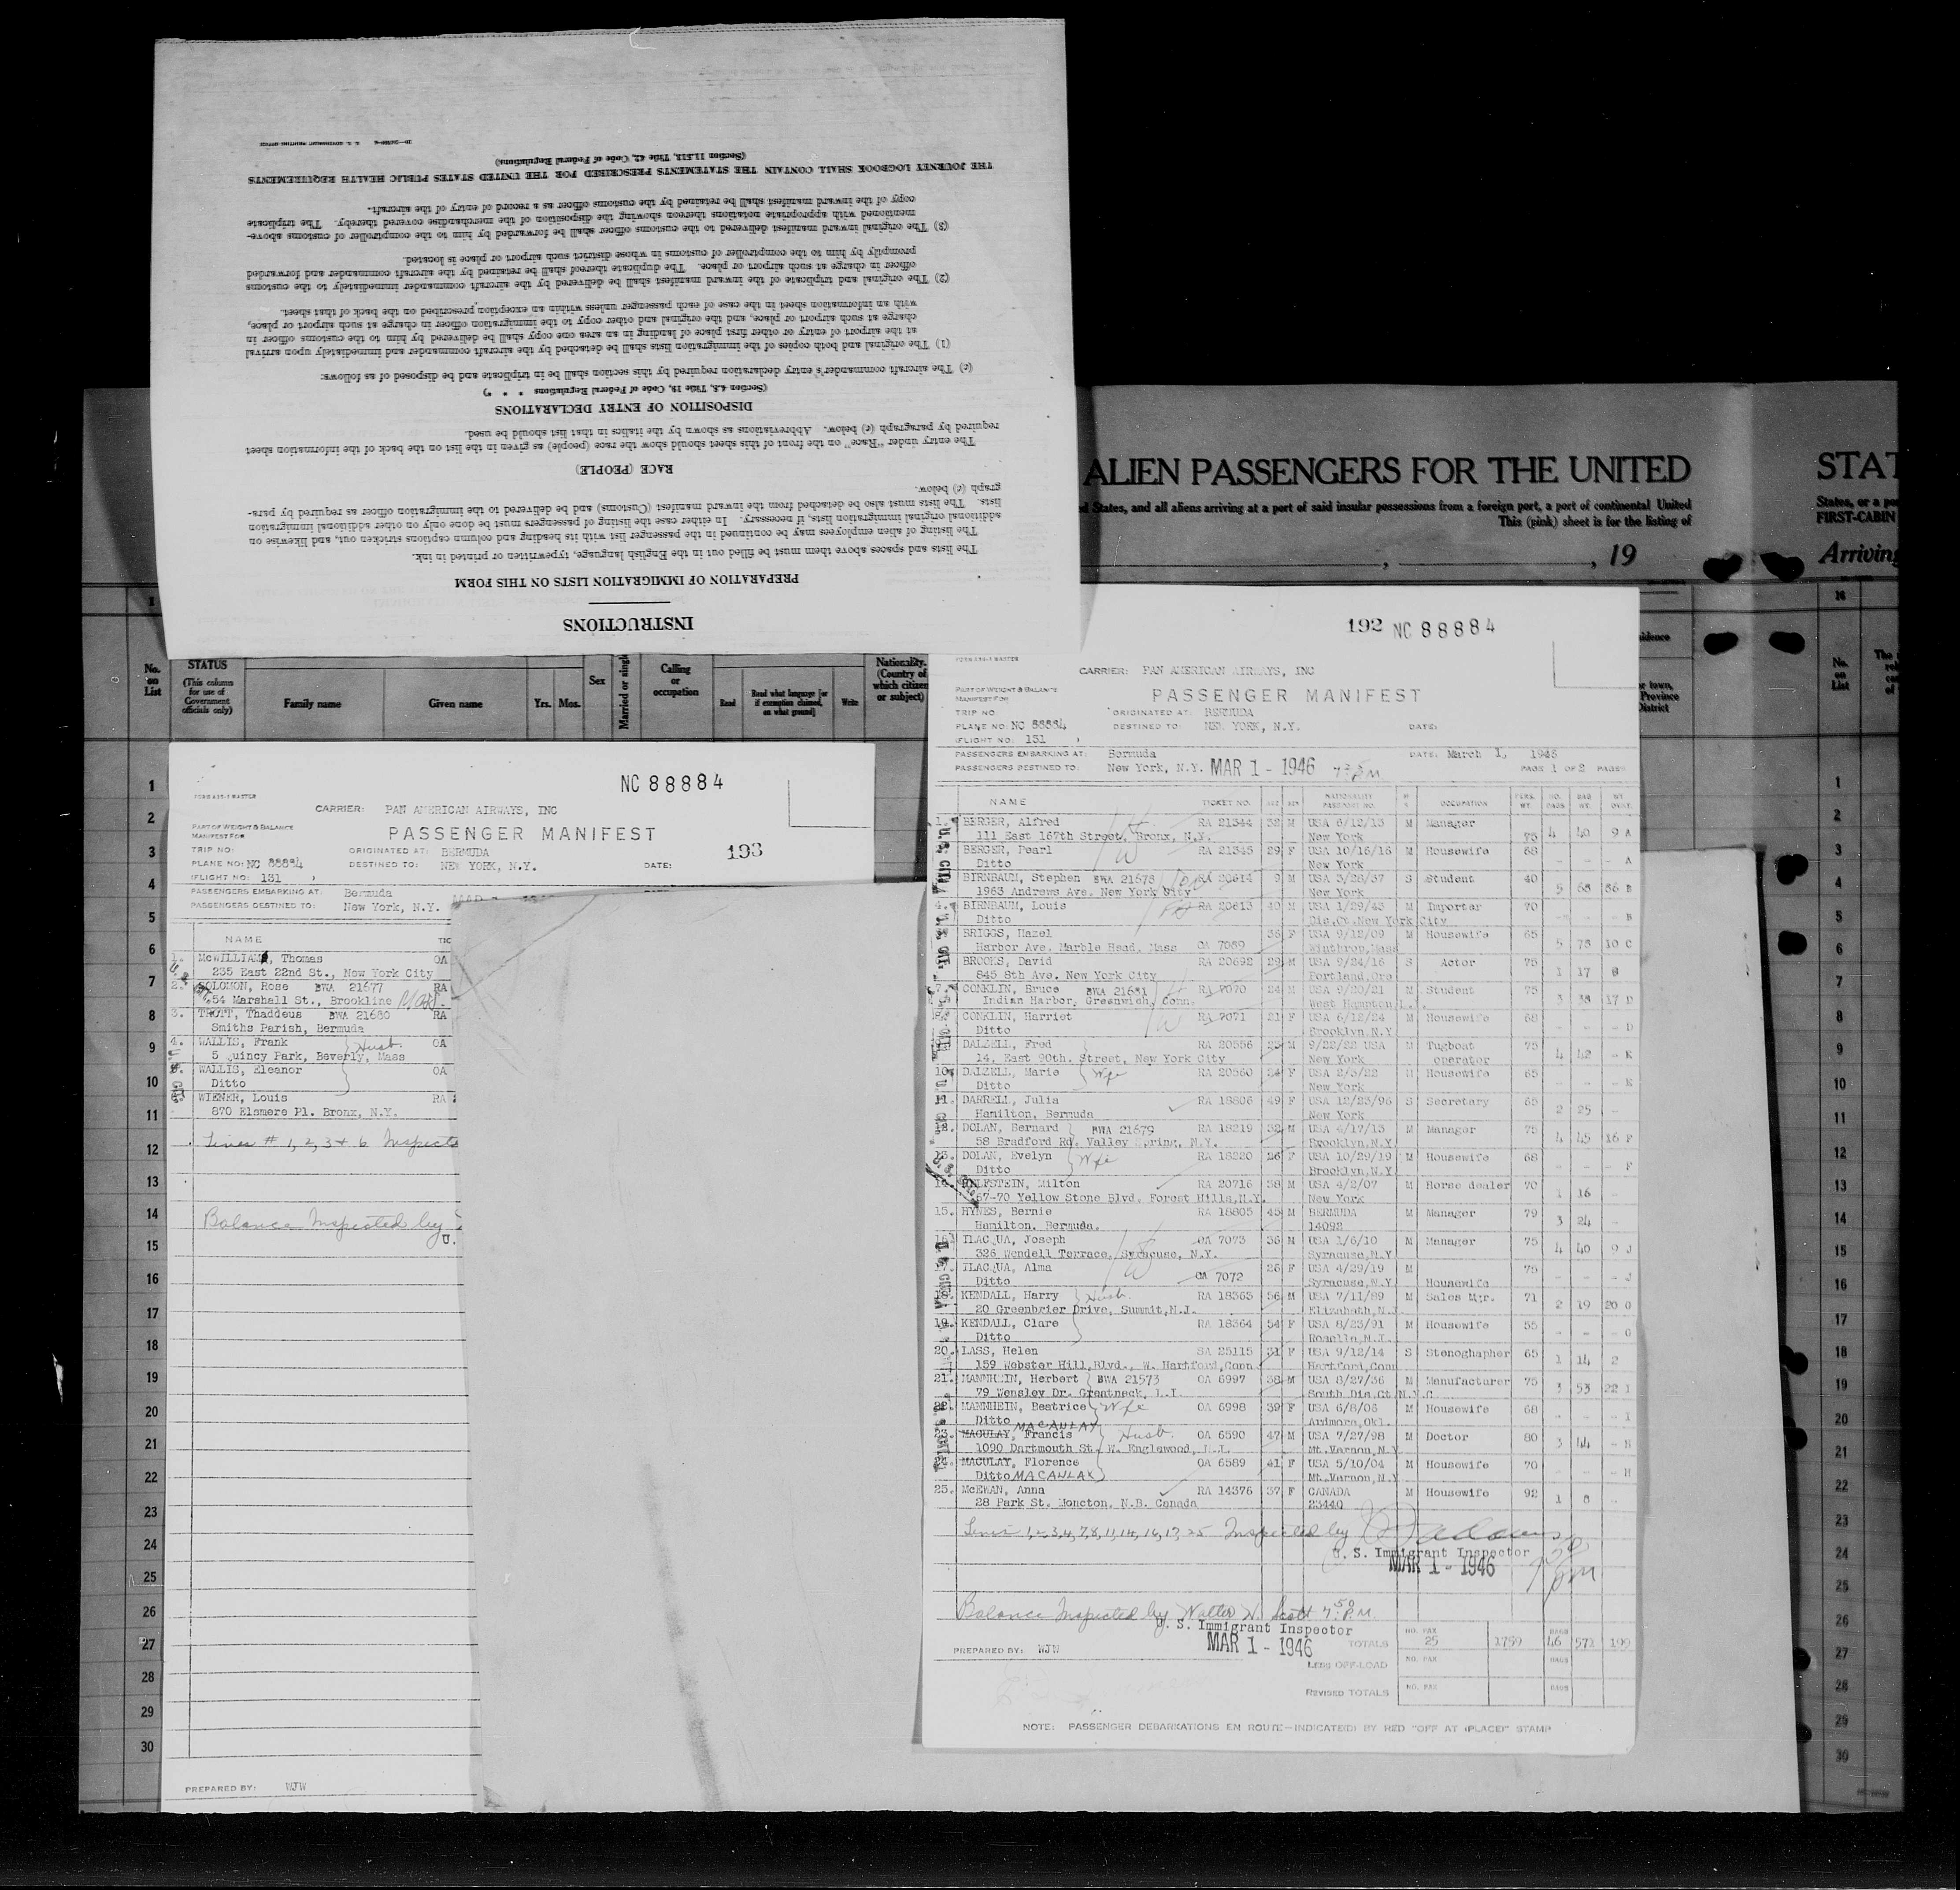 INSTRUCTIONS
PREPARATION OF IMMIGRATION LISTS ON THIS FORM
The lists and spaces above them must be filled out in the English language, typewritten or printed in ink.
The listing of alien employees may be continued in the passenger list with its heading and column captions stricken out, and likewise on
additional original immigration lists, if necessary. In either case the listing of passengers must be done only on other additional immigration
lists. The lists must also be detached from the inward manifest (Customs) and be delivered to the immigration officer as required by para-
graph (c) below.
RACE (PEOPLE)
The entry under "Race" on the front of this sheet should show the race (people) as given in the list on the back of the information sheet
required by paragraph (e) below. Abbreviations as shown by the italics in that list should be used.
DISPOSITION OF ENTRY DECLARATIONS
(Section 4.5, Title 19, Code of Federal Regulations
(c) The aircraft commander's entry declaration required by this section shall be in triplicate and be disposed of as follows:
(1) The original and both copies of the immigration lists shall be detached by the aircraft commander and immediately upon arrival
at the airport of entry or other first place of landing in an area one copy shall be delivered by him to the customs officer in
charge at such airport or place, and the original and other copy to the immigration officer in charge at such airport or place,
with an information sheet in the case of each passenger unless within an exception prescribed on the back of that sheet.
(2) The original and triplicate of the inward manifest shall be delivered by the aircraft commander immediately to the customs
officer in charge at such airport or place. The duplicate thereof shall be retained by the aircraft commander and forwarded
promptly by him to the comptroller of customs in whose district such airport or place is located.
(3) The original inward manifest delivered to the customs officer shall be forwarded by him to the comptroller of customs above-
mentioned with appropriate notations thereon showing the disposition of the merchandise covered thereby. The triplicate
copy of the inward manifest shall be retained by the customs officer as a record of entry of the aircraft.
THE JOURNEY LOGBOOK SHALL CONTAIN THE STATEMENTS PRESCRIBED FOR THE UNITED STATES PUBLIC HEALTH REQUIREMENTS
(Section 11.513, Title 42, Code of Federal Regulations)
ALIEN PASSENGERS FOR THE UNITED
STAT
d States, and all aliens arriving at a port of said insular possessions from a foreign port, a port of continental United
This (pink) sheet is for the listing of
States, or a po
FIRST-CABIN
, 19
Arriving
No. on List
STATUS (This column for use of Government officials only)
Family name
Given name
Yrs. Mos.
Sex
Married or single
Calling or occupation
Read
Read what language [or if exemption claimed, on what ground]
Write
Nationality. (Country of which citizen or subject)
NC 88884
FORM 435-3 MASTER
CARRIER: PAN AMERICAN AIRWAYS, INC
PART OF WEIGHT & BALANCE
MANIFEST FOR
PASSENGER MANIFEST
193
TRIP NO:
ORIGINATED AT: BERMUDA
PLANE NO: NC 88884
DESTINED TO: NEW YORK, N.Y.
DATE:
(FLIGHT NO: 131 )
PASSENGERS EMBARKING AT: Bermuda
PASSENGERS DESTINED TO: New York, N.Y.
NAME
1. McWILLIAMS, Thomas OA
235 East 22nd St., New York City
2. SOLOMON, Rose BWA 21677 RA
54 Marshall St., Brookline Mass.
3. TROTT, Thaddeus BWA 21680 RA
Smiths Parish, Bermuda
4. WALLIS, Frank Husb. OA
5 Quincy Park, Beverly, Mass
5. WALLIS, Eleanor OA
Ditto
WIENER, Louis RA
870 Elsmere Pl. Bronx, N.Y.
Lines # 1, 2, 3 & 6 Inspecte
Balance Inspected by
U.
PREPARED BY: WJW
192 NC 88884
FORM 435-3 MASTER
CARRIER: PAN AMERICAN AIRWAYS, INC
PART OF WEIGHT & BALANCE
MANIFEST FOR
PASSENGER MANIFEST
TRIP NO
ORIGINATED AT: BERMUDA
PLANE NO: NC 88884
DESTINED TO: NEW YORK, N.Y.
DATE:
(FLIGHT NO: 131 )
PASSENGERS EMBARKING AT: Bermuda DATE: March 1, 1946
PASSENGERS DESTINED TO: New York, N.Y. MAR 1 - 1946 PAGE 1 OF 2 PAGES
NAME TICKET NO. AGE SEX NATIONALITY PASSPORT NO. M S OCCUPATION PERS. WT. NO. BAGS BAG WT. WT OVWT.
1. BERGER, Alfred RA 21344 32 M USA 6/12/13 M Manager
111 East 167th Street, Bronx, N.Y. New York 75 4 40 9 A
BERGER, Pearl RA 21345 29 F USA 10/16/16 M Housewife 68
Ditto New York - - - A
BIRNBAUM, Stephen BWA 21678 RA 20614 9 M USA 3/28/37 S Student 40
1963 Andrews Ave. New York City New York 5 68 36 B
4. BIRNBAUM, Louis RA 20613 40 M USA 1/29/43 M Importer 70
Ditto Dis.Ct.New York City - - - B
BRIGGS, Hazel 36 F USA 9/12/09 M Housewife 65
Harbor Ave. Marble Head, Mass OA 7089 Winthrop,Mass 5 75 10 C
BROOKS, David RA 20692 29 M USA 9/24/16 S Actor 75
845 8th Ave. New York City Portland,Ore 1 17
7. CONKLIN, Bruce BWA 21681 RA 7070 24 M USA 9/20/21 M Student 75
Indian Harbor, Greenwich, Conn. West Hampton L.I. 3 38 17 D
CONKLIN, Harriet RA 7071 21 F USA 6/12/24 M Housewife 68
Ditto Brooklyn,N.Y - - - D
DALZELL, Fred RA 20556 23 M 9/22/22 USA M Tugboat 75
14, East 90th. Street, New York City New York operator 4 42 - E
10. DALZELL, Marie Wife RA 20560 24 F USA 2/5/22 M Housewife 65
Ditto New York - - - E
11. DARRELL, Julia RA 18806 49 F USA 12/23/96 S Secretary 65
Hamilton, Bermuda New York 2 25 -
12. DOLAN, Bernard BWA 21679 RA 18219 32 M USA 4/17/13 M Manager 75
58 Bradford Rd. Valley Spring, N.Y. Brooklyn,N.Y 4 45 16 F
13. DOLAN, Evelyn Wife RA 18220 26 F USA 10/29/19 M Housewife 68
Ditto Brooklyn,N.Y - - - F
14. Milton RA 20716 38 M USA 4/2/07 M Horse dealer 70
67-70 Yellow Stone Blvd. Forest Hills,N.Y. New York 1 16 -
15. HYNES, Bernie RA 18805 45 M BERMUDA M Manager 79
Hamilton, Bermuda. 14092 3 24 -
16. ILACQUA, Joseph OA 7073 36 M USA 1/6/10 M Manager 75
326 Wendell Terrace, Syracuse, N.Y. Syracuse,N.Y 4 40 9 J
17. ILACQUA, Alma 26 F USA 4/29/19 M 75
Ditto OA 7072 Syracuse,N.Y Housewife - - - J
18. KENDALL, Harry Husb. RA 18363 56 M USA 7/11/89 M Sales Mgr. 71
20 Greenbrier Drive, Summit,N.J. Elizabeth,N.J. 2 19 20 G
19. KENDALL, Clare RA 18364 54 F USA 8/23/91 M Housewife 55
Ditto Roselle,N.J. - - - G
20. LASS, Helen SA 25115 31 F USA 9/12/14 S Stenoghapher 65
159 Webster Hill,Blvd., W. Hartford,Conn Hartford,Conn 1 14 2
21. MANNHEIN, Herbert BWA 21573 OA 6997 38 M USA 8/27/36 M Manufacturer 75
79 Wensley Dr. Greatneck, L.I. South Dis.Ct N.Y.C. 3 53 22 I
22. MANNHEIN, Beatrice Wife OA 6998 39 F USA 6/8/06 M Housewife 68
Ditto Ardmore,Okl. - - - I
MACAULAY
23. MACULAY, Francis Husb. OA 6590 47 M USA 7/27/98 M Doctor 80
1090 Dartmouth St. W. Englewood, N.J. Mt.Vernon,N.Y 3 44 - H
24. MACULAY, Florence OA 6589 41 F USA 5/10/04 M Housewife 70
Ditto MACAULAY Mt.Vernon,N.Y - - - H
25. McEWAN, Anna RA 14376 37 F CANADA M Housewife 92
28 Park St. Moncton, N.B. Canada 23440 1 8 -
Lines 1,2,3,4,7,8,11,14,16,17,25 Inspected by
U. S. Immigrant Inspector
MAR 1 - 1946
Balance Inspected by Walter W. Scott 7:50 P.M.
U. S. Immigrant Inspector
MAR 1 - 1946
PREPARED BY: WJW
TOTALS NO. PAX 25 1759 BAGS 46 571 199
LESS OFF-LOAD NO. PAX BAGS
REVISED TOTALS NO. PAX BAGS
NOTE: PASSENGER DEBARKATIONS EN ROUTE—INDICATE(D) BY RED "OFF AT (PLACE)" STAMP